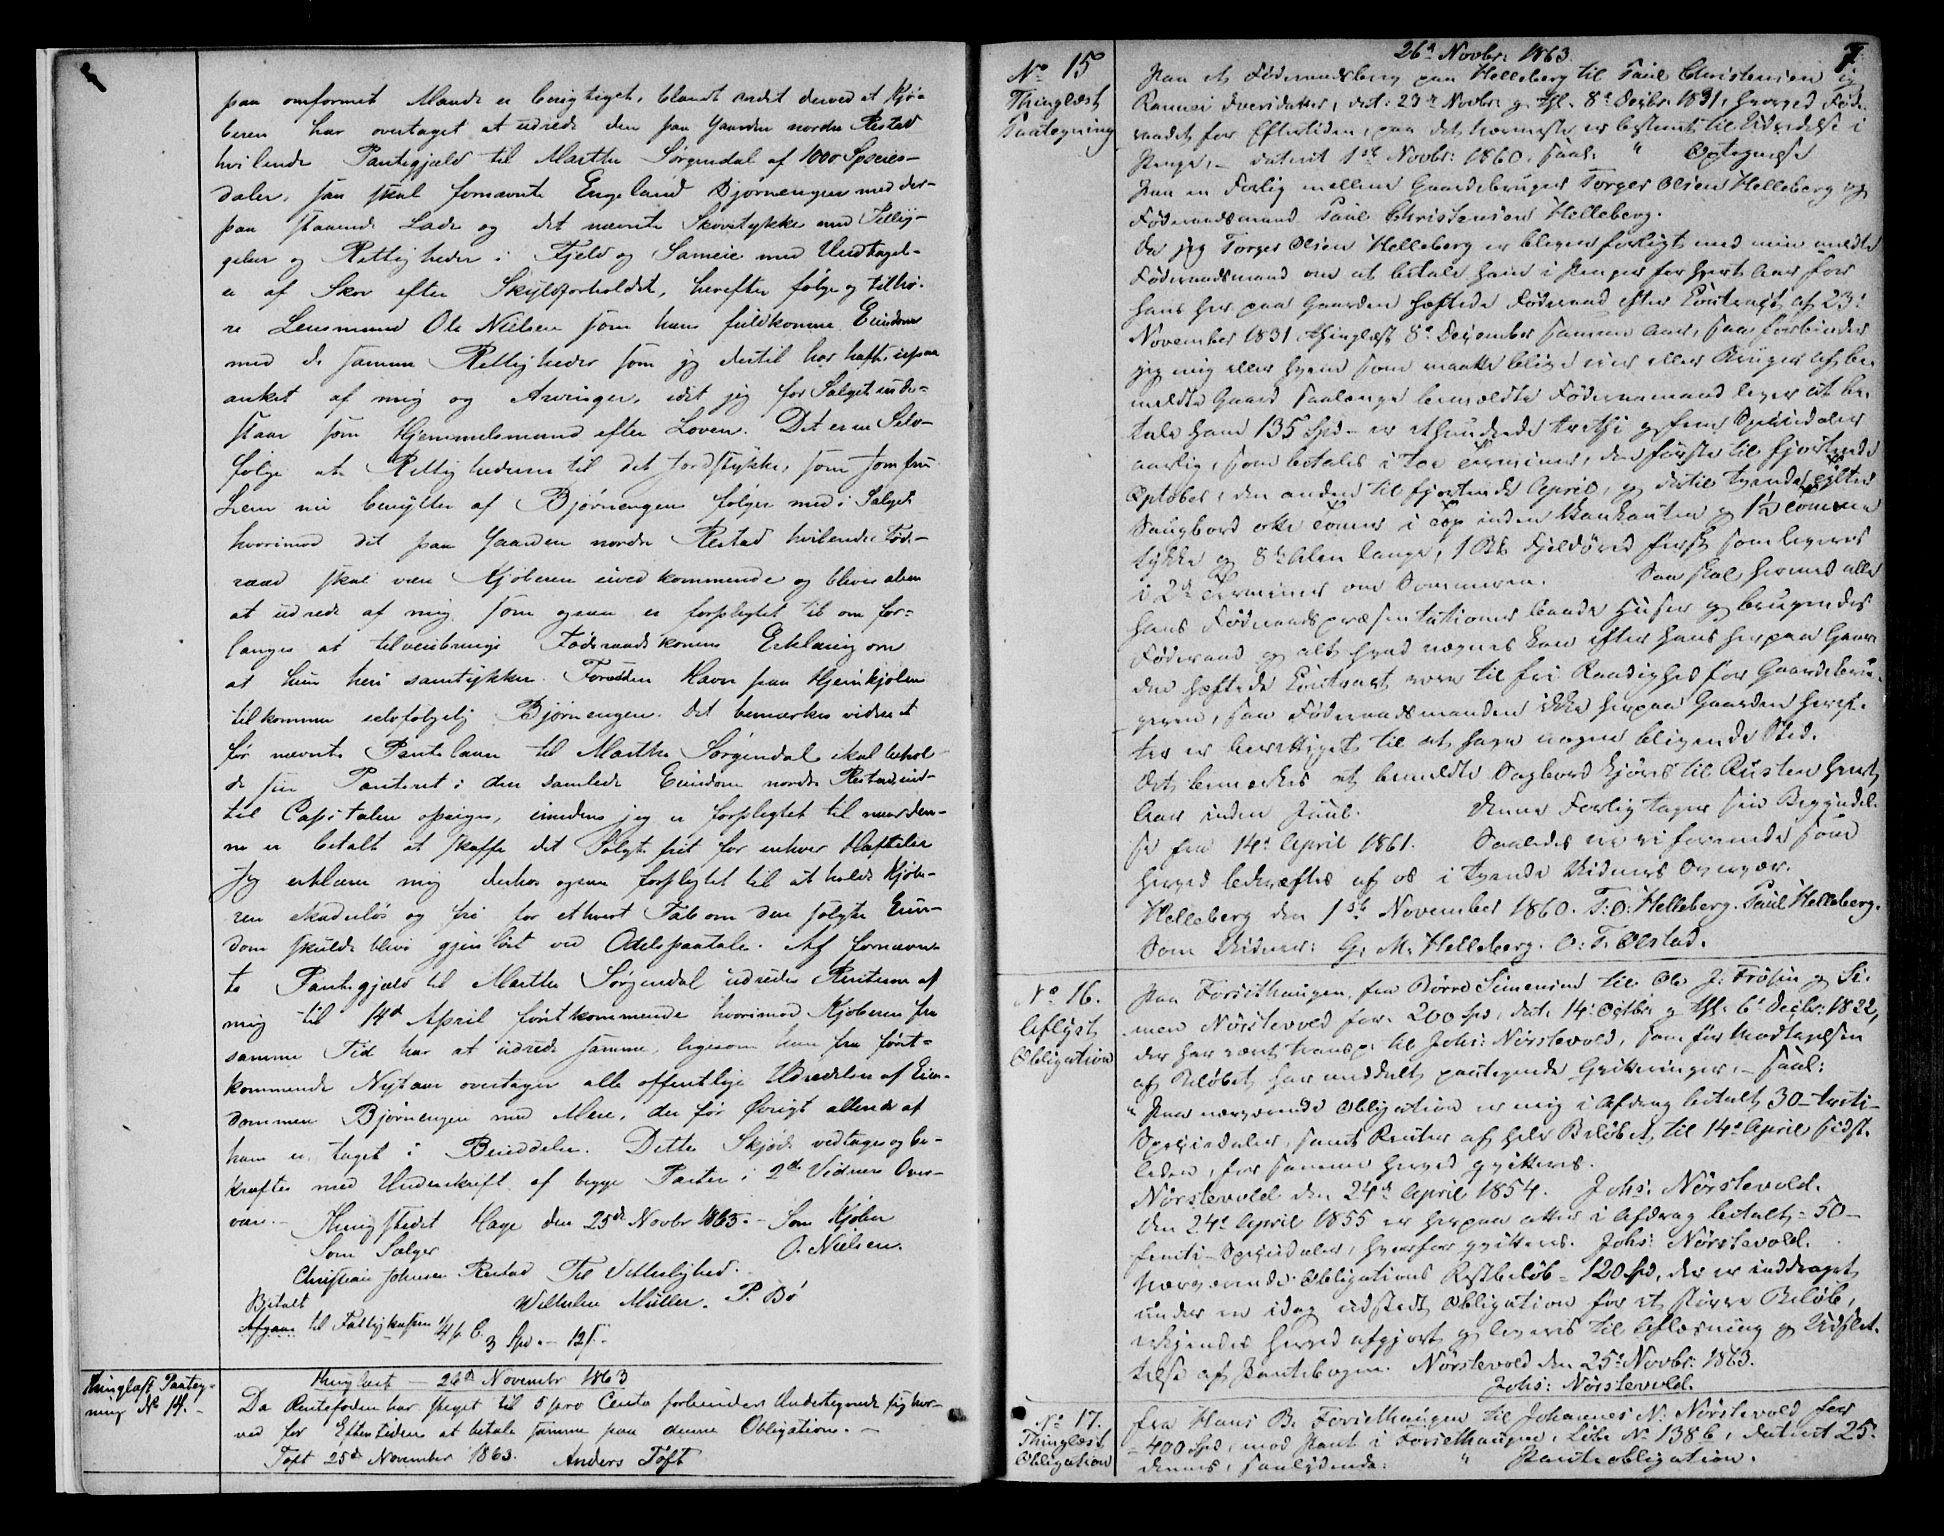 paa omformet Maade er berigtiget, blandt andet derved at Kjø-
beren har overtaget at udrede den paa Gaarden nordre Restad
hvilende Pantegjæld til Marthe Sørgendal af 1000 Species-
daler, saa skal fornævnte Engeland Bjørnengen med der-
paa staaende Lade og det nævnte Skovstykke med Tillig-
gelser og Rettigheder i Fjeld og Sameie med Undtagel-
se af Skov efter Skyldforholdet, herefter følge og tilhø-
re Lensmand Ole Nielsen som hans fuldkomne Eiendom
med de samme Rettigheder som jeg dertil har hafte, upaa
anket af mig og Arvinger, idet jeg for Salget inde-
staar som Hjemmelsmand efter Loven. Det er en Selv-
følge at Rettighederne til det Jordstykke, som Jomfru
Lem nu benytter af Bjørnengen følger med i Salget
hvorimod det paa Gaarden nordre Restad hvilende Føde-
raad skal være Kjøberen uvedkommende og bliver alene
at udrede af mig som ogsaa er forpligtet til om for-
langes at tilveiebringe Føderaadskonens Erklæring om
at hun heri samtykker. Foruden Havn paa Hjeinkjølen
tilkommer selvfølgelig Bjørnengen. Det bemærkes videre at
før nævnte Pantelaan til Marthe Sørgendal skal behol-
de sin Panteret i den samlede Eiendom nordre Restad ind-
til Capitalen opsiges, imedens jeg er forpligtet til naar den-
ne er betalt at skaffe det Solgte frit for enhver Heftelse
Jeg erklærer mig derhos ogsaa forpligtet til at holde Kjøbe-
ren skadesløs og fri for ethvert Tab om den solgte Eien-
dom skulde blive gjenløst ved Odelspaatale. Af fornævn-
te Pantegjæld til Marthe Sørgendal udredes Renterne af
mig til 14d April førstkommende hvorimod Kjøberen fra
samme Tid har at udrede samme, ligesom han fra først-
kommende Nytaar overtager alle offentlige Udredelser af Eien-
dommen Bjørnengen med Mere, der før Øvrigt allerede af
ham er taget i Besiddelse. Dette Skjøde vedtages og be-
kræftes med Underskrift af begge Parter i 2de Vidners Over-
vær. - Thingstedet Hage den 25de Novbr 1863. - Som Kjøber
Som Sælger O. Nielsen.
Christian Johnsen Restad Til Vitterlighed.
Wilhelm Müller. P. Bø
Betalt
Afgavt til Fattigkassen 1/4 p. C. 3 Spd. - 12 s.
Thinglæst Paateg-
ning No 14. -
Thinglæst - 26de November 1863
Da Rentefoden har steget til 5 pro Cento forbinder Undertegnede sig her-
ved for Eftertiden at betale samme paa denne Obligation. -
Toft 25de November 1863. Anders Toft
26d Novbr: 1863. 7
No 15
Thinglæst
Paategning
Paa et Føderaadsbrev paa Helleberg til Paul Christensen og
Rannei Iversdatter, dat: 23de Novbr: og thl. 8d Decbr: 1831, hvorved Føde-
raadet for Eftertiden, paa det nærmeste er bestemt til Udredelse i
Penge, - dateret 1ste Novbr: 1860, saal: " Optegnelse
Paa en Forlig mellem Gaardebruger Torger Olsen Helleberg og
Føderaadsmand Paul Christensen Helleberg.
Da jeg Torger Olsen Helleberg er bleven forligt med min meldte
Føderaadsmand om at betale ham i Penger for hvert Aar for
hans her paa Gaarden hæftede Føderaad efter Contract af 23d
November 1831 thinglæst 8d December samme Aar, saa forbinder
jeg mig eller hvem som maatte blive eier eller Bruger af be-
meldte Gaard saalænge bemældte Føderaadsmand lever at be-
tale ham 135 Spd - er ethundrede tretti og fem Speciedaler
aarlig, som betales i toe terminer, den første til fjortende
October, den anden til fjortende April, og dertil tyende Tylter
Saugbord otte Tommer i Top inden Vankanten og 1½ Tomme
tykke og 8te Alen lange, 1 Bk Fjeldørred fersk som leveres
i 2de Terminer om Sommeren. Saa skal hermed alle
hans Føderaadspræsentationer baade Huser og brugendes
Føderaad og alt hvad nævnes kan efter hans her paa Gaar-
den hæftede Contract være til fri Raadighed for Gaardebru-
geren, saa Føderaadsmanden ikke herpaa Gaarden heref-
ter er berettiget til at have nogen blivende Sted.
Det bemerkes at bemeldte Sagbord kjøres til Rusten hvert
Aar inden Juul. Denne Forlig tager sin Begyndel-
se fra 14d April 1861. Saaledes ere vi forenede som
herved bekræftes af os i tyende Vidners Overvær.
Helleberg den 1ste November 1860. T: O: Helleberg. Paul Helleberg.
Som Vidner: G. M. Helleberg. O: T. Olstad.
No 16.
Aflyst
Obligation
Paa Forsethaugen, fra Børre Simensen til Ole J: Frøsen og Si-
men Nørstevold for 200 Spd, dat. 14d Octbr: og thl. 6d Decbr: 1822,
der har været transp: til Johs: Nørstevold, som før Modtagelsen
af Beløbet har meddelt paategnede Qvitteringer, - saal:
" Paa nærværende Obligation er mig i Afdrag betalt 30 - treti -
Speciedaler, samt Renter af hele Beløbet til 14d April sidst-
leden, for samme herved qvitteres.
Nørstevold den 24de April 1854. Johs: Nørstevold.
Den 24d April 1855 er herpaa atter i Afdrag betalt - 50 -
femti - Speciedaler, hvorfor qvitteres. Johs: Nørstevold.
Nærværende Obligations Restbeløb - 120 Spd, der er inddraget
under en idag udstedt Obligation for et større Beløb,
erkjendes herved afgjort og leveres til Aflæsning og Udslet-
telse af Pantebogen. Nørstevold den 25d Novbr: 1863.
Johs: Nørstevold.
No 17.
Thinglæst
Obligation
fra Hans B. Forsethaugen til Johannes N: Nørstevold for
- 400 Spd, mod Pant i Forsethaugen, Løbe No 1386, dateret 25d
dennes, saalydende: " Panteobligation.